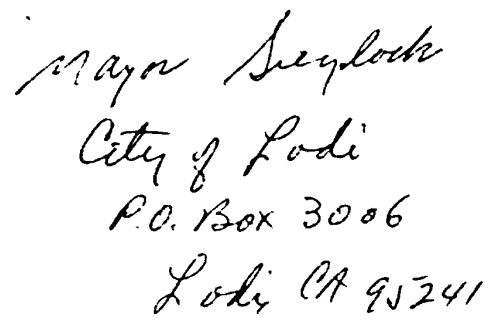 Mayor Sieglock
City of Lodi
P.O. Box 3006
Lodi, CA 95241